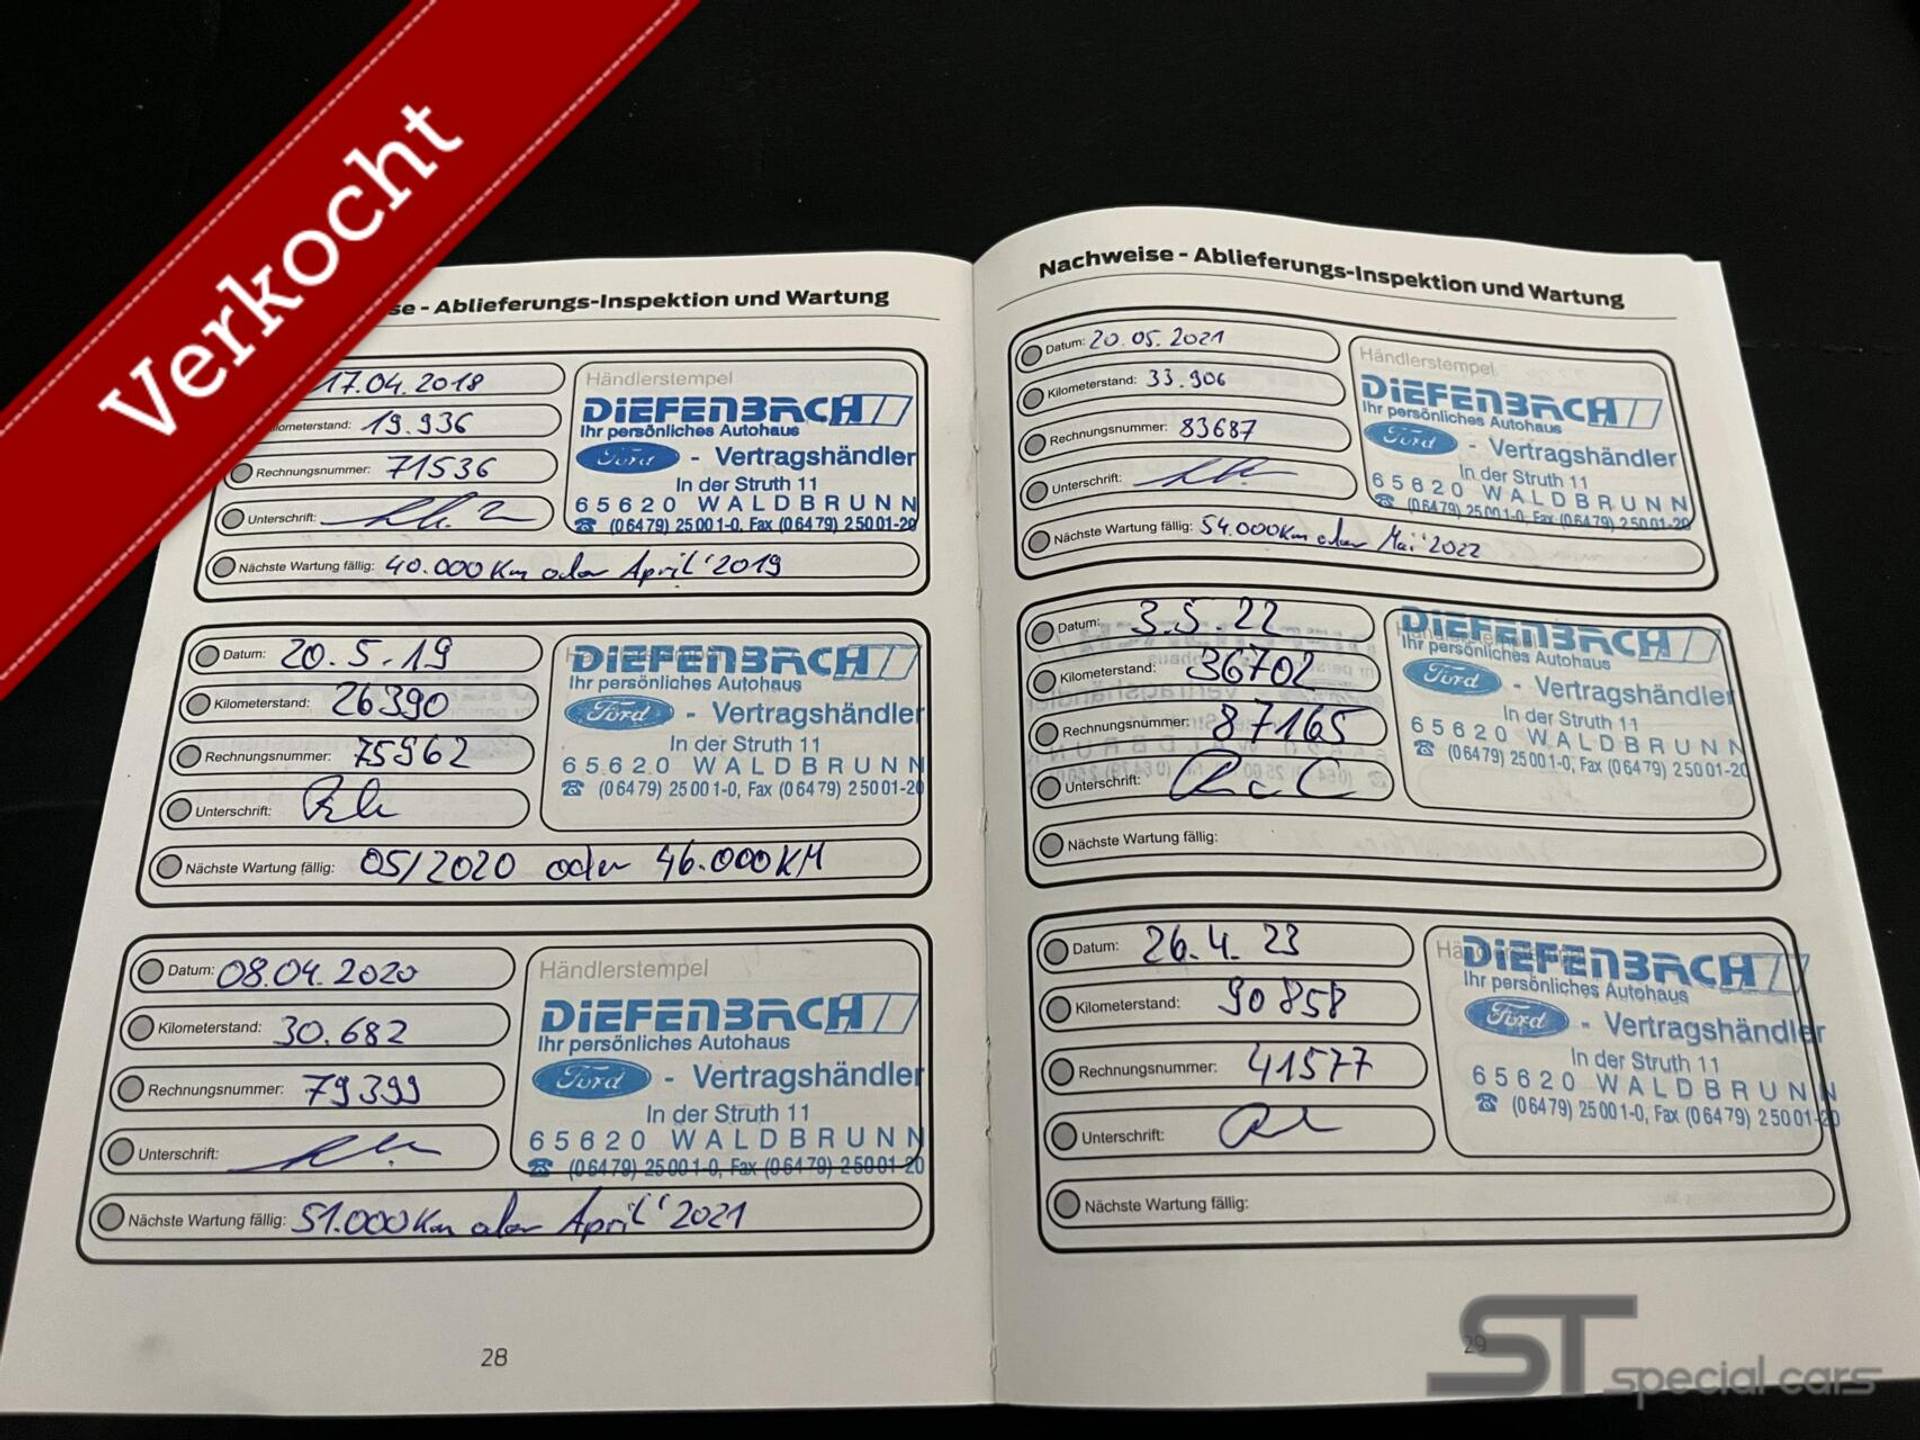 Verkocht
se - Ablieferungs-Inspektion und Wartung
17.04.2018
ometerstand: 19.936
Rechnungsnummer: 71536
Unterschrift:
Nächste Wartung fällig: 40.000 Km oder April '2019
Händlerstempel
DIEFENBACH
Ihr persönliches Autohaus
Ford - Vertragshändler
In der Struth 11
65620 WALDBRUNN
☎ (06479) 25001-0, Fax (06479) 25001-20
Datum: 20.5.19
Kilometerstand: 26390
Rechnungsnummer: 75962
Unterschrift:
Nächste Wartung fällig: 05/2020 oder 46.000 KM
DIEFENBACH
Ihr persönliches Autohaus
Ford - Vertragshändler
In der Struth 11
65620 WALDBRUNN
☎ (06479) 25001-0, Fax (06479) 25001-20
Datum: 08.04.2020
Kilometerstand: 30.682
Rechnungsnummer: 79399
Unterschrift:
Nächste Wartung fällig: 51.000 Km oder April '2021
Händlerstempel
DIEFENBACH
Ihr persönliches Autohaus
Ford - Vertragshändler
In der Struth 11
65620 WALDBRUNN
☎ (06479) 25001-0, Fax (06479) 25001-20
28
Nachweise - Ablieferungs-Inspektion und Wartung
Datum: 20.05.2021
Kilometerstand: 33.906
Rechnungsnummer: 83687
Unterschrift:
Nächste Wartung fällig: 54.000 Km oder Mai '2022
Händlerstempel
DIEFENBACH
Ihr persönliches Autohaus
Ford - Vertragshändler
In der Struth 11
65620 WALDBRUNN
☎ (06479) 25001-0, Fax (06479) 25001-20
Datum: 3.5.22
Kilometerstand: 36702
Rechnungsnummer: 87165
Unterschrift:
Nächste Wartung fällig:
DIEFENBACH
Ihr persönliches Autohaus
Ford - Vertragshändler
In der Struth 11
65620 WALDBRUNN
☎ (06479) 25001-0, Fax (06479) 25001-20
Datum: 26.4.23
Kilometerstand: 90858
Rechnungsnummer: 41577
Unterschrift:
Nächste Wartung fällig:
DIEFENBACH
Ihr persönliches Autohaus
Ford - Vertragshändler
In der Struth 11
65620 WALDBRUNN
☎ (06479) 25001-0, Fax (06479) 25001-20
29
ST special cars